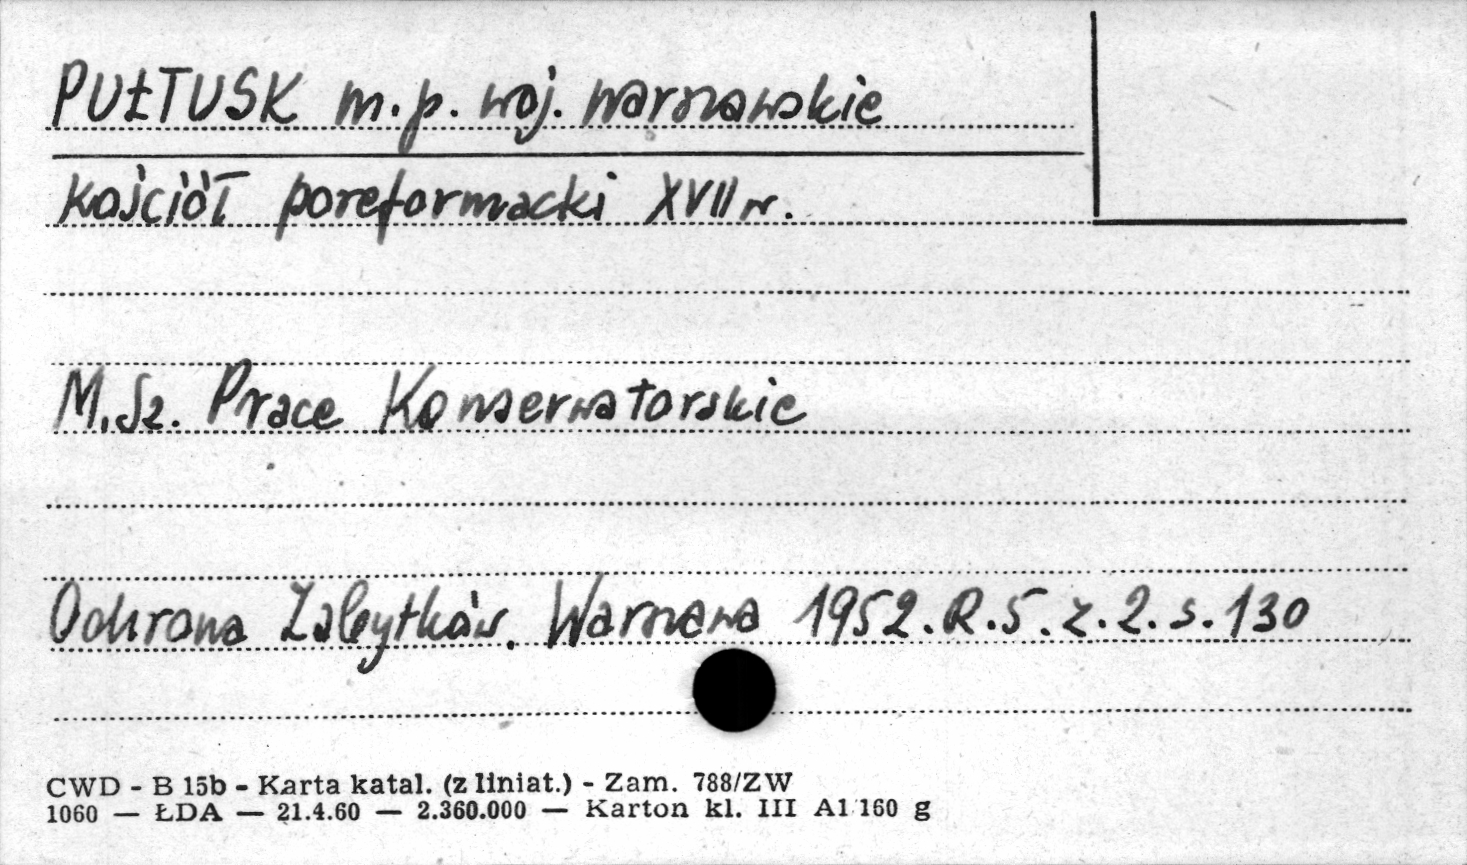 PUŁTUSK m.p. woj. warszawskie
kościół poreformacki XVII w.
M.Sz. Prace Konserwatorskie
Ochrona Zabytków. Warszawa 1952.R.5.z.2.s.130
CWD - B 15b - Karta katal. (z liniat.) - Zam. 788/ZW
1060 — ŁDA — 21.4.60 — 2.360.000 — Karton kl. III A1 160 g